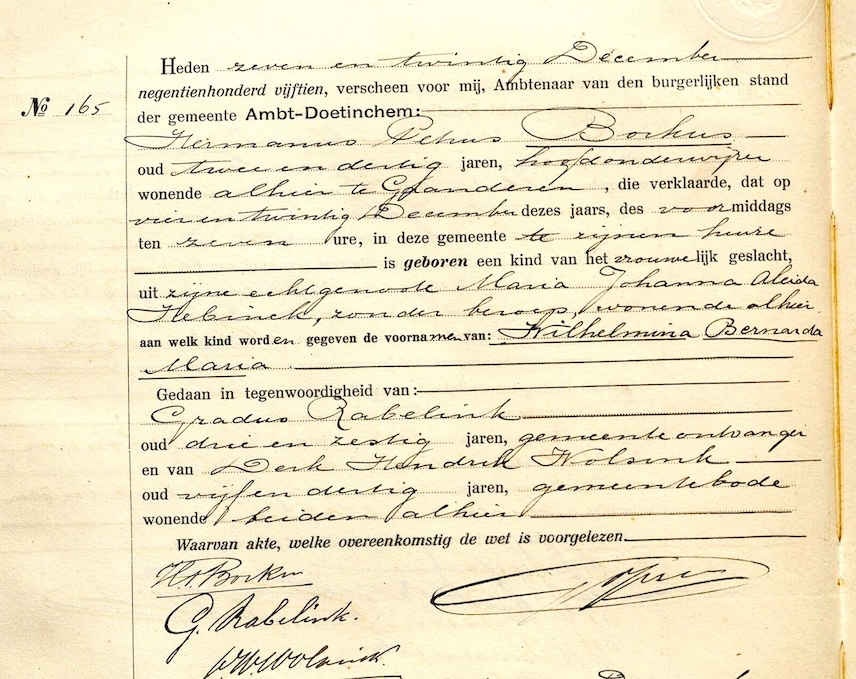 Heden zeven en twintig December
negentienhonderd vijftien, verscheen voor mij, Ambtenaar van den burgerlijken stand
No 165
der gemeente Ambt-Doetinchem:
Hermanus Petrus Borkus
oud twee en dertig jaren, hoofdonderwijzer
wonende alhier te Gaanderen, die verklaarde, dat op
vier en twintig December dezes jaars, des voormiddags
ten zeven ure, in deze gemeente te zijnen huize
is geboren een kind van het vrouwelijk geslacht,
uit zijne echtgenoote Maria Johanna Aleida
Hebinck, zonder beroep, wonende alhier
aan welk kind worden gegeven de voornamen van: Wilhelmina Bernarda
Maria.
Gedaan in tegenwoordigheid van:
Gradus Rabelink
oud drie en zestig jaren, gemeente ontvanger
en van Derk Hendrik Wolsink
oud vijf en dertig jaren, gemeentebode
wonende beiden alhier
Waarvan akte, welke overeenkomstig de wet is voorgelezen.
G. Rabelink.